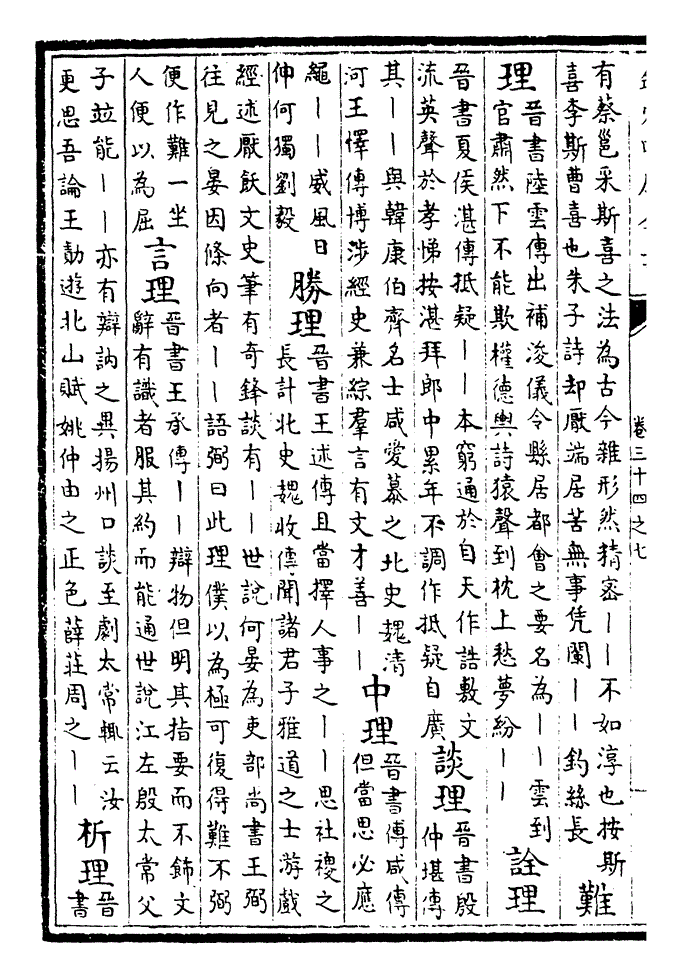 卷三十四之七
有蔡邕采斯喜之法為古今雜形然精密丨丨不如淳也按斯
喜李斯曹喜也朱子詩却厭端居苦無事凭闌丨丨釣絲長
難
理
晉書陸雲傳出補浚儀令縣居都會之要名為丨丨雲到
官肅然下不能欺權德輿詩猿聲到枕上愁夢紛丨丨
詮理
晉書夏侯湛傳抵疑丨丨本窮通於自天作誥敷文
流英聲於孝悌按湛拜郎中累年不調作抵疑自廣
談理
晉書殷
仲堪傳
其丨丨與韓康伯齊名士咸愛慕之北史魏清
河王懌傳博涉經史兼綜羣言有文才善丨丨
中理
晉書傅咸傳
但當思必應
繩丨丨威風日
伸何獨劉毅
勝理
晉書王述傳且當擇人事之丨丨思社稷之
長計北史魏收傳聞諸君子雅道之士游戲
經述厭飫文史筆有奇鋒談有丨丨世說何晏為吏部尚書王弼
往見之晏因條向者丨丨語弼曰此理僕以為極可復得難不弼
便作難一坐
人便以為屈
言理
晉書王承傳丨丨辯物但明其指要而不飾文
辭有識者服其約而能通世說江左殷太常父
子並能丨丨亦有辯訥之異揚州口談至劇太常輒云汝
更思吾論王勔遊北山賦姚仲由之正色薛莊周之丨丨
析理
晉
書